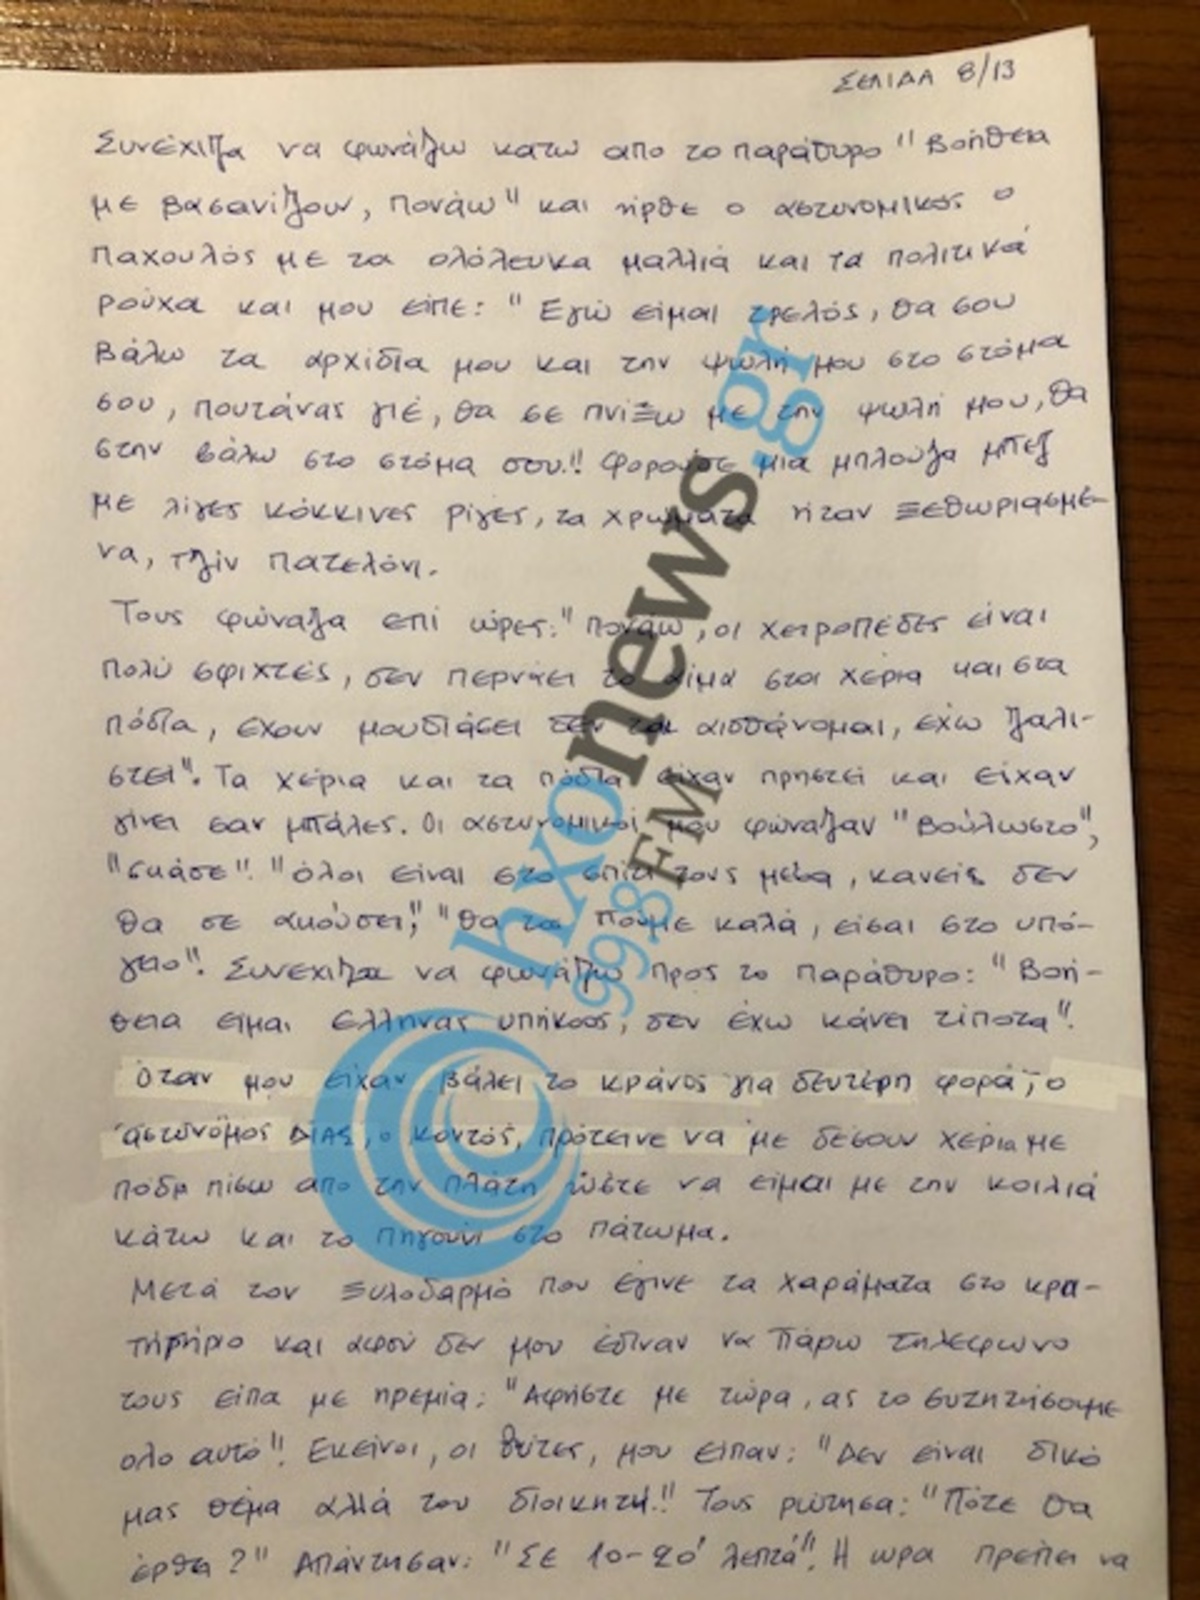 ΣΕΛΙΔΑ 8/13
Συνέχιζα να φωνάζω κατω απο το παράθυρο "Βοήθεια
με βασανίζουν, πονάω" και ήρθε ο αστυνομικος ο
παχουλός με τα ολόλευκα μαλλιά και τα πολιτικά
ρούχα και μου είπε: "Εγώ είμαι τρελός, θα σου
βάλω τα αρχίδια μου και την ψωλή μου στο στόμα
σου, πουτάνας γιέ, θα σε πνίξω με την ψωλή μου, θα
στην βάλω στο στόμα σου!! Φορούσε μια μπλούζα μπεζ
με λίγες κόκκινες ρίγες, τα χρώματα ήταν ξεθωριασμέ-
να, τζίν πατελόνι.
Τους φώναζα επί ώρες: "πονάω, οι χειροπέδες είναι
πολύ σφιχτές, δεν περνάει το αίμα στα χέρια και στα
πόδια, έχουν μουδιάσει δεν τα αισθάνομαι, έχω ζαλι-
στεί". Τα χέρια και τα πόδια είχαν πρηστεί και είχαν
γίνει σαν μπάλες. Οι αστυνομικοί μου φώναζαν "βούλωστο",
"σκάσε". "όλοι είναι στο σπίτι τους μέσα, κανείς δεν
θα σε ακούσει", "θα τα πούμε καλά, είσαι στο υπό-
γειο". Συνεχιζα να φωνάζω προς το παράθυρο: "Βοή-
θεια είμαι έλληνας υπήκοος, δεν έχω κάνει τίποτα".
Όταν μου είχαν βάλει το κράνος για δεύτερη φορά, ο
αστυνόμος ΔΙΑΣ, ο κοντός, πρότεινε να με δέσουν χέρια με
πόδια πίσω απο την πλάτη ώστε να είμαι με την κοιλιά
κάτω και το πηγούνι στο πάτωμα.
Μετά τον ξυλοδαρμό που έγινε τα χαράματα στο κρα-
τητήριο και αφού δεν μου έδιναν να πάρω τηλεφωνο
τους είπα με ηρεμία: "Αφήστε με τώρα, ας το συζητήσουμε
ολο αυτό"! Εκείνοι, οι θύτες, μου είπαν: "Δεν είναι δικό
μας θέμα αλλά του διοικητή!" Τους ρώτησα: "Πότε θα
έρθει?" Απάντησαν: "Σε 10-20' λεπτά". Η ωρα πρέπει να
hxonews.gr
99.8 FM